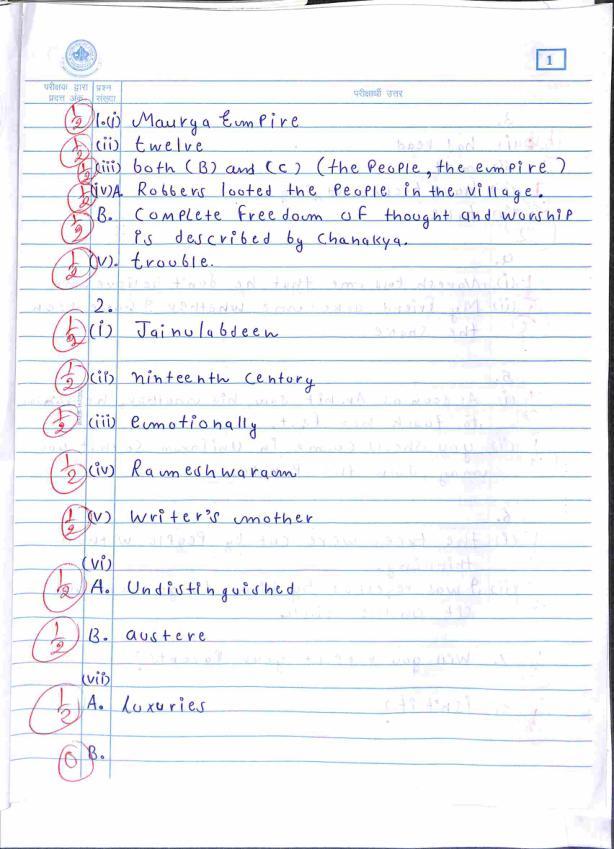 1
परीक्षक द्वारा प्रदत्त अंक प्रश्न संख्या परीक्षार्थी उत्तर
1/2 1.(i) Maurya Eumpire
1/2 (ii) twelve
1/2 (iii) both (B) and (C) (the People, the eumpire)
1/2 (iv)A. Robbers looted the People in the village.
1/2 B. Complete freedoum of thought and worship
is described by Chanakya.
1/2 (v). trouble.
2.
1/2 (i) Jainulabdeen
1/2 (ii) ninteenth Century
1/2 (iii) eumotionally
1/2 (iv) Rameshwaraum
1/2 (v) Writer's mother
(vi)
1/2 A. Undistinguished
1/2 B. austere
(vii)
1/2 A. luxuries
0 B.